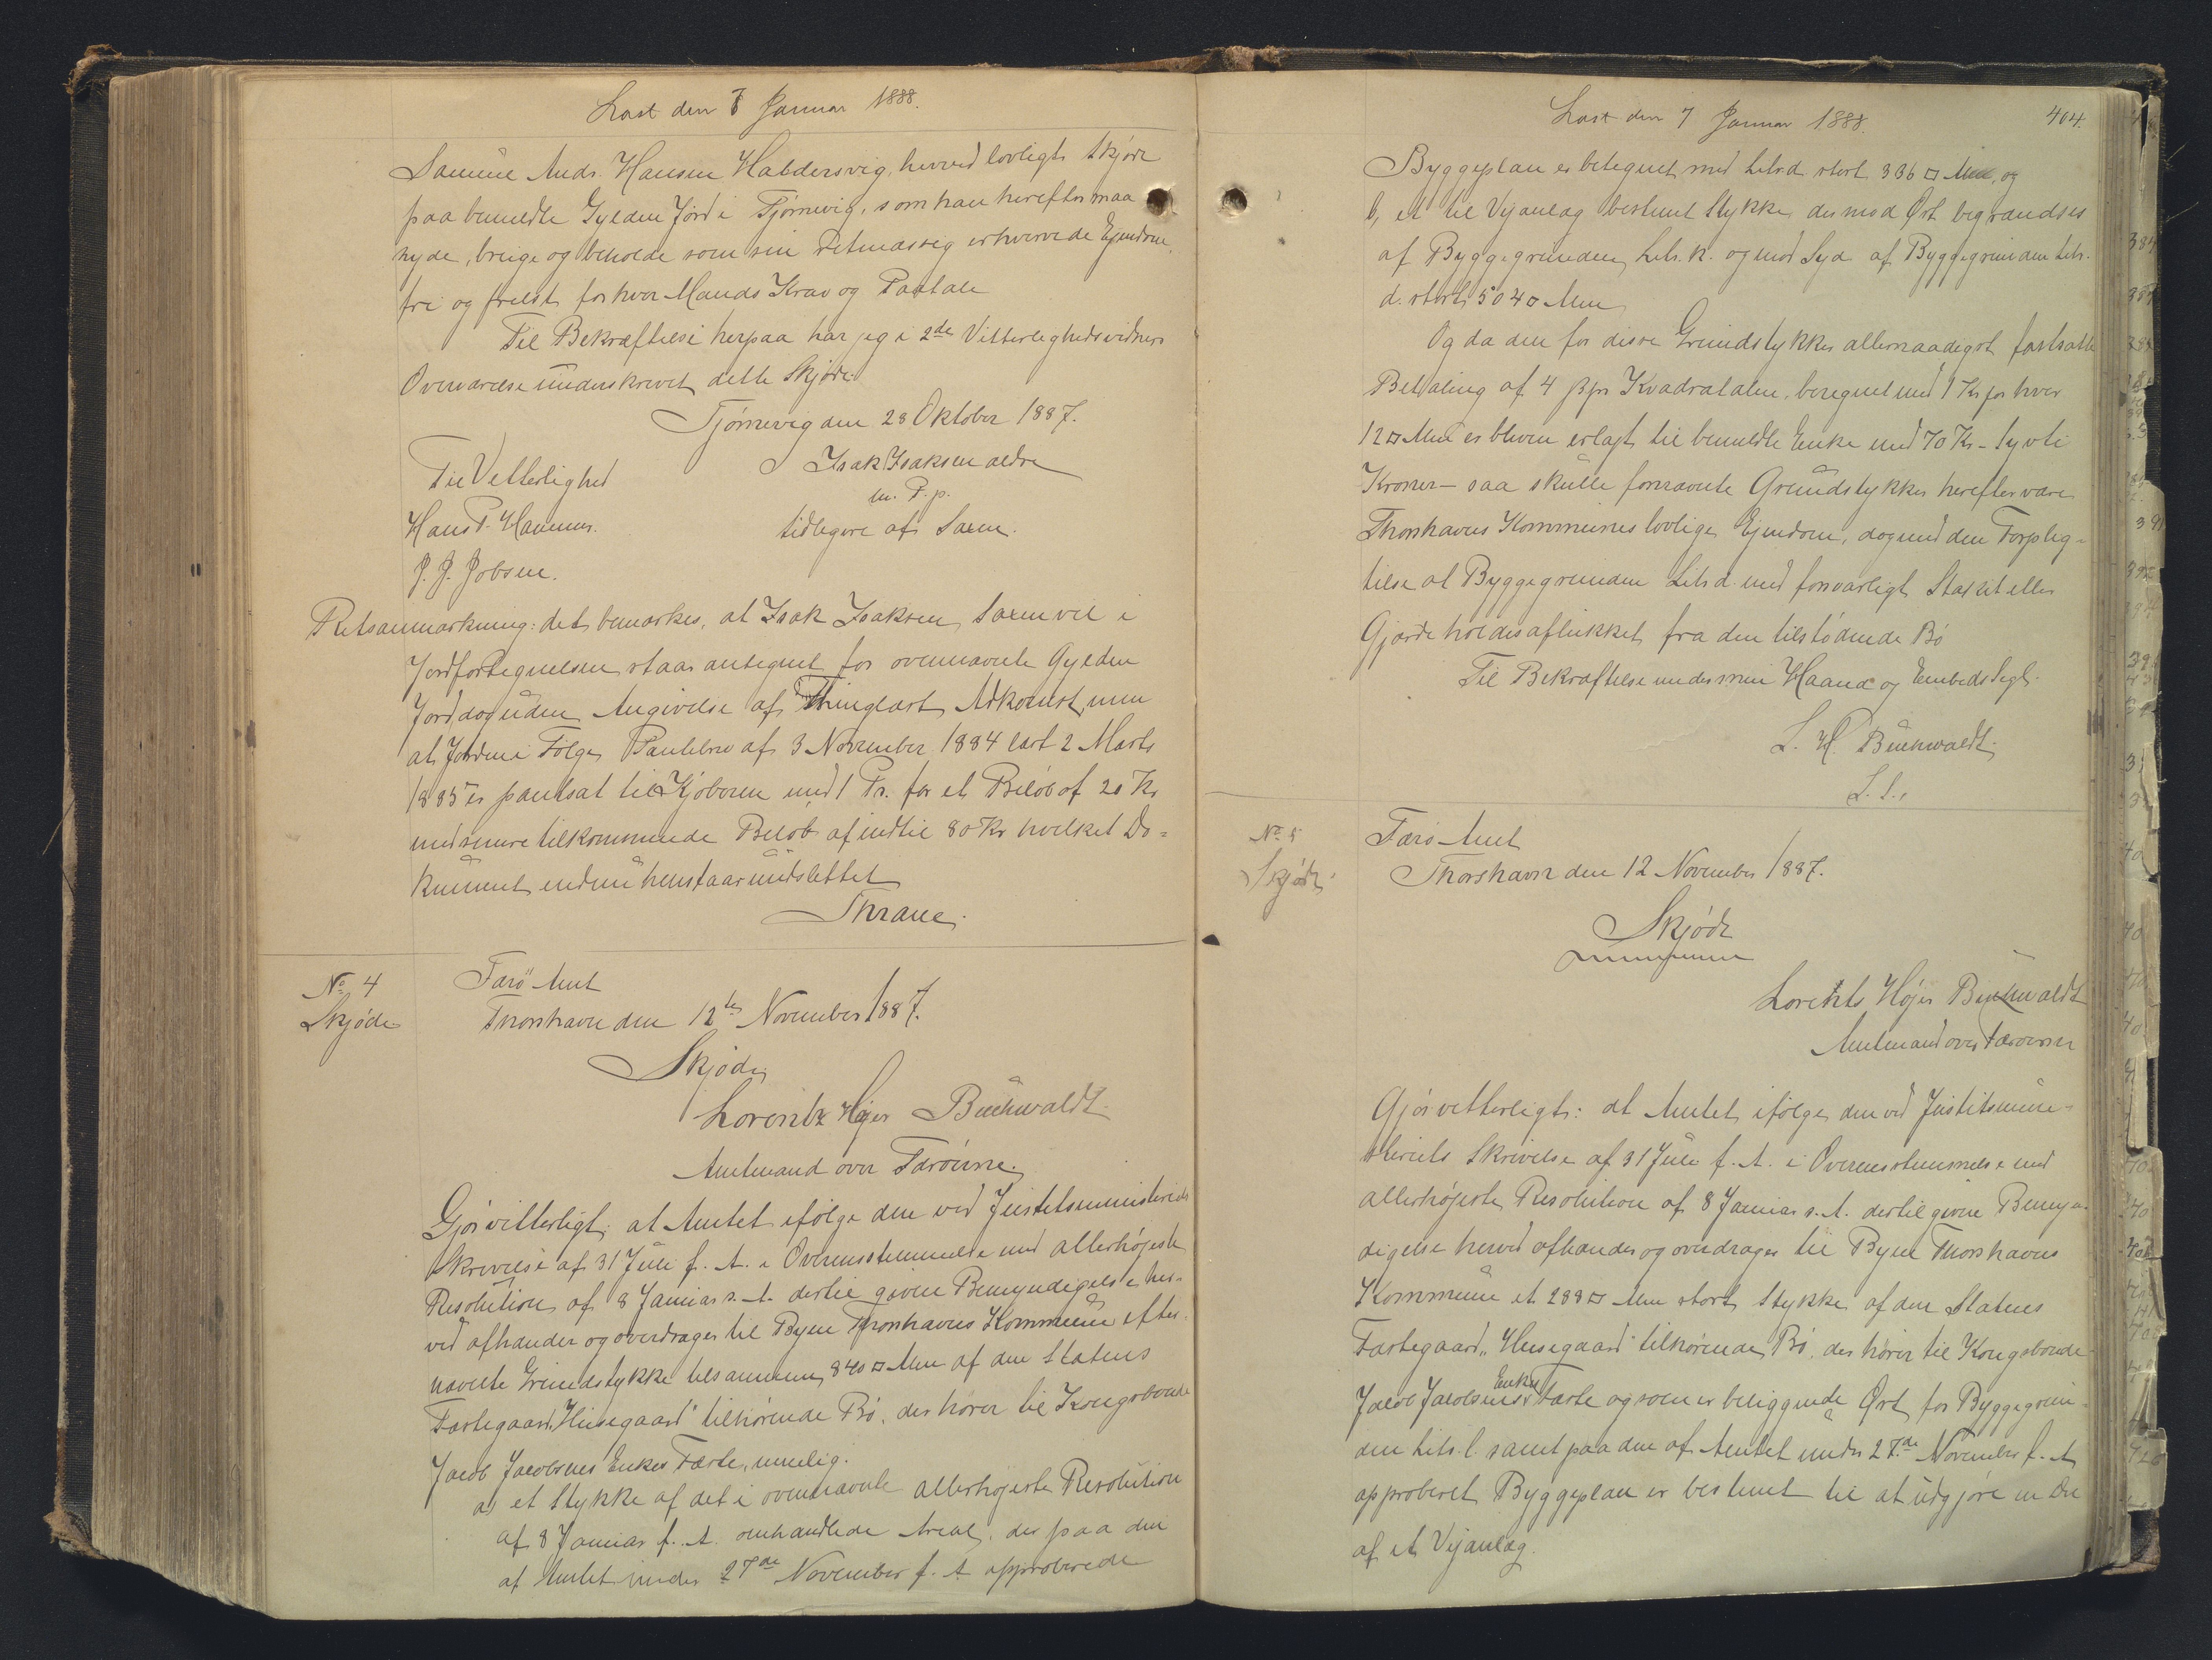 Læst den 7 Januar 1888.
Samme Andr. Hansen Haldersvig, herved lovligt Skjøde
paa bemeldte Gylden Jord i Tjørnevig, som han herefter maa
nyde, bruge og beholde som sin retmæssig erhvervede Ejendom
fri og frelst for hver Mands Krav og Paatale
Til Bekræftelse herpaa har jeg i 2de Vitterlighedsvidners
Overværelse underskrevet dette Skjøde
Tjørnevig den 28 Oktober 1887.
Til Vitterlighed
Isak Isaksen ældre
m. P. p.
Hans P. Hammer.
tidligere af Saxen.
J. J. Jobsen.
Retsanmærkning: det bemærkes, at Isak Isaksen, Saxen vel i
Jordfortegnelsen staar antegnet for ovennævnte Gylden
Jord dog uden Angivelse af Thinglæst Adkomst, men
at Jorden i Følge Pantebrev af 3 November 1884 læst 2 Marts
1885 er pantsat til Kjøberen med 1 Pr. for et Beløb af 20 Kr
med senere tilkommende Beløb af indtil 80 Kr hvilket Do=
kument endnu henstaar uudslettet
Thrane.
No. 4
Skjøde
Færø Amt
Thorshavn den 12te November 1887.
Skjøde
Lorentz Højer Buchwaldt
Amtmand over Færøerne.
Gjør vitterligt; at Amtet ifølge den ved Justitsministeriets
Skrivelse af 31 Juli f. A. i Overensstemmelse med allerhøjeste
Resolution af 8 Januar s. A. dertil givne Bemyndigelse her=
ved afhænder og overdrager til Byen Thorshavns Kommune efter=
nævnte Grundstykke tilsammen 840 □ Alen af den Statens
Fæstegaard "Husegaard" tilhørende Bø, der hører til Kongsbonde
Jacob Jacobsens Enkes Fæste, nemlig.
a, et Stykke af det i ovennævnte allerhøjeste Resolution
af 8 Januar f. A. omhandlede Areal, der paa den
af Amtet under 27de November f. A approberede
Læst den 7 Januar 1888.
404.
Byggeplan er betegnet med Litr. d stort 336 □ Alen, og
b, et til Vejanlæg bestemt Stykke, der mod Øst begrændses
af Byggegrunden, Litr. k. og mod Syd af Byggegrunden Litr.
d. stort 504 □ Alen
Og da den for disse Grundstykker allernaadigst fastsatte
Betaling af 4 β pr Kvadratalen, beregnet med 1 Kr for hver
12 □ Alen er bleven erlagt til bemeldte Enke med 70 Kr - syvti
Kroner - saa skulle fornævnte Grundstykker herefter være
Thorshavns Kommunes lovlige Ejendom, dog med den Forplig=
telse at Byggegrunden Litr. d. med forsvarligt Stakit eller
Gjærde holdes aflukket fra den tilstødende Bø
Til Bekræftelse under min Haand og Embedssegl.
L. H. Buchwaldt.
L. S.
No. 5
Skjøde
Færø Amt
Thorshavn den 12 November 1887.
Skjøde
Lorentz Højer Buchwaldt
Amtmand over Færøerne
Gjør vitterligt: at Amtet ifølge den ved Justitsmini=
steriets Skrivelse af 31 Juli f. A. i Overensstemmelse med
allerhøjeste Resolution af 8 Januar s. A. dertil givne Bemyn=
digelse herved afhænder og overdrager til Byen Thorshavns
Kommune et 288 □ Alen stort Stykke af den Statens
Fæstegaard "Husegaard" tilhørende Bø, der hører til Kongsbonde
Jacob Jacobsens Enkes Fæste og som er beliggende Øst for Byggegrun=
den Litr. l. samt paa den af Amtet under 27de November f. A
approberet Byggeplan er bestemt til at udgjøre en Del
af et Vejanlæg.